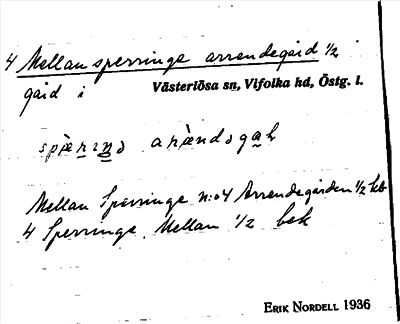 4 Mellan sperringe arrendegård 1/2
gård i Västerlösa sn, Vifolka hd, Östg. l.
spæ̀rɪŋə arændəgaḥ
Mellan Sperringe n:o 4 Arrendegården 1/2
4 Sperringe Mellan 1/2 bek
ERIK NORDELL 1936